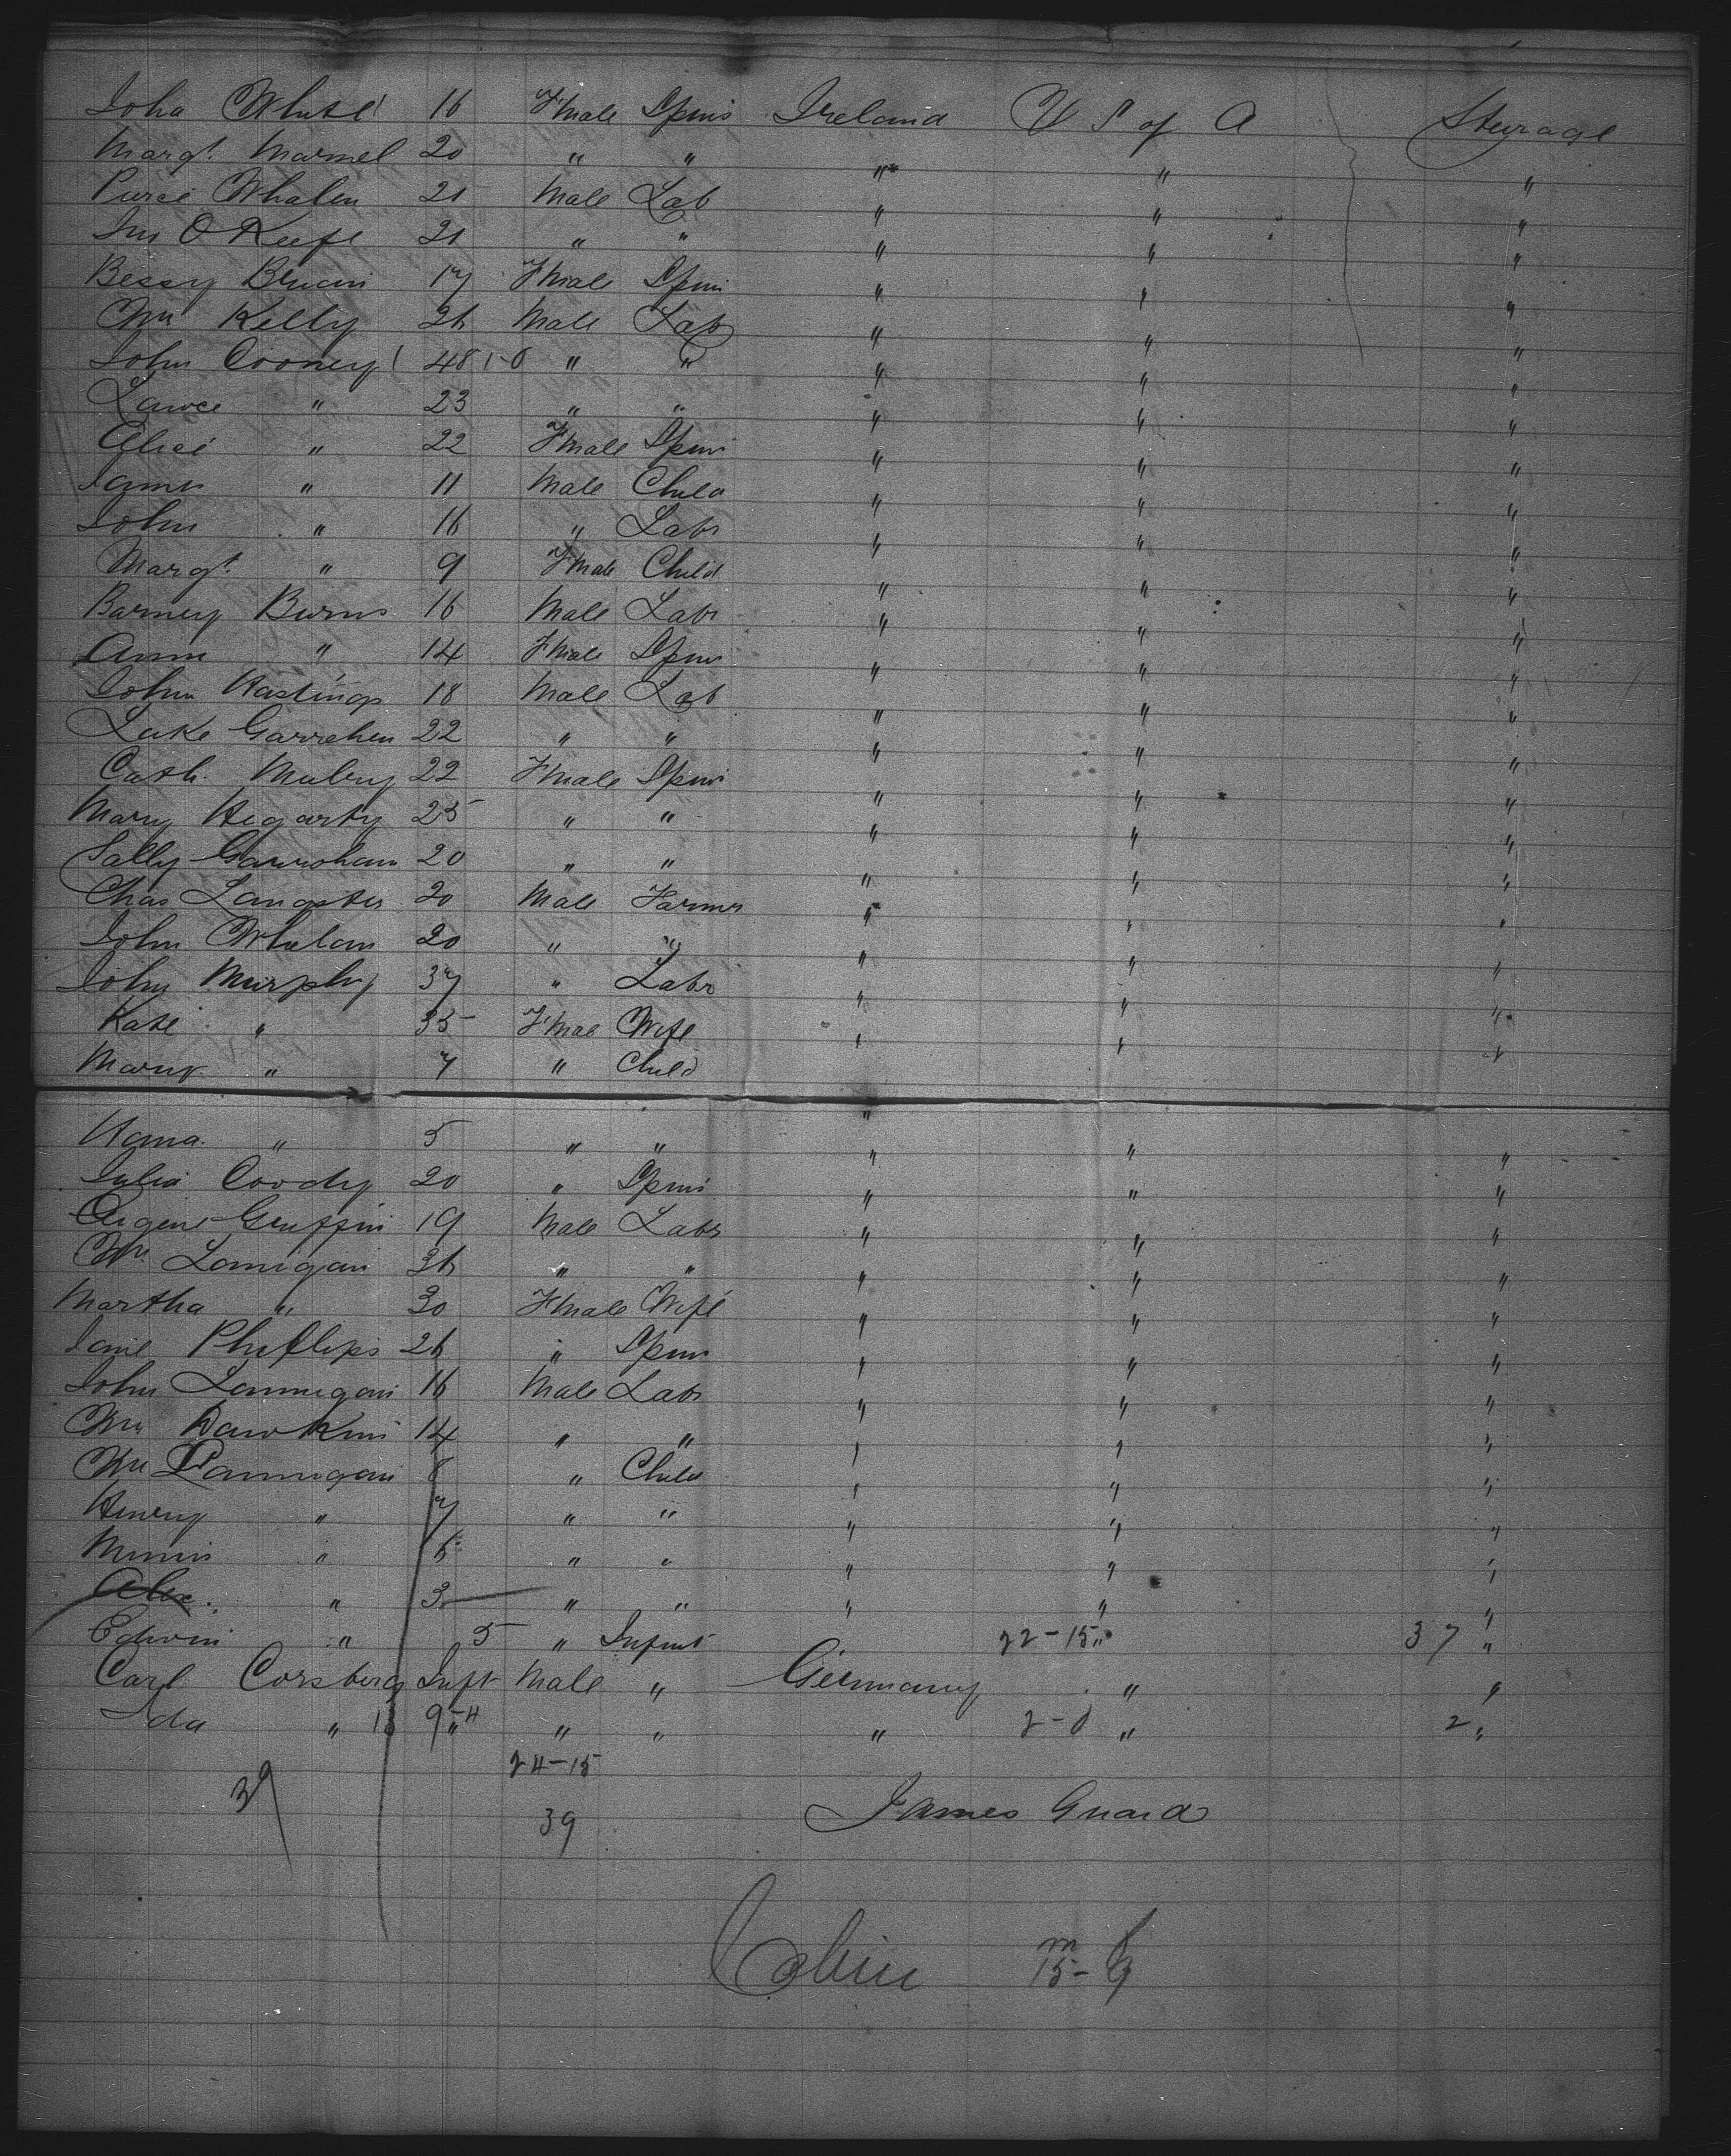 Joha White 16 Fmale Spins Ireland U S of A Steerage
Margt. Marmel 20 " " " " "
Pierce Whalen 21 Male Lab " " "
Jno O Keefe 21 " " " " "
Bessy 17 Fmale Spin " " "
Wm Kelly 26 Male Lab " " "
John Cooney 48 " " " " "
Lawce " 23 " " " " "
Alice " 22 Fmale Spin " " "
James " 11 Male Child " " "
John " 16 " Labr " " "
Margt. " 9 Fmale Child " " "
Barney Burns 16 Male Labr " " "
Ann " 14 Fmale Spin " " "
John Hastings 18 Male Lab " " "
Luke Garrehen 22 " " " " "
Cath. 22 Fmale Spin " " "
Mary Hegarty 25 " " " " "
Sally 20 " " " " "
Chas Langster 20 Male Farmer " " "
John Whelan 20 " " " " "
John Murphy 37 " Labr " " "
Kate " 35 Fmale Wife " " "
Mary " 7 " Child " " "
Hana. " 5 " " " " "
Julia Coody 20 " Spins " " "
Eugene Griffin 19 Male Labr " " "
Wm. Lanigan 36 " " " " "
Martha " 30 Fmale Wife " " "
Jane Phillips 26 " Spin " " "
John Lannigan 16 Male Labr " " "
Wm Dawkins 14 " " " " "
Wm Lannigan 8 " Child " " "
Henry " 7 " " " " "
" 6 " " " " "
Alex. " 3 " " " " "
Edwin " 5 " Infant 22-15 " 37 "
Carl Corsberg Inft Male " Germany " "
Ida " 9 " " " 2-0 " 2 "
24-15
39 39 James Guard
m f
15-9